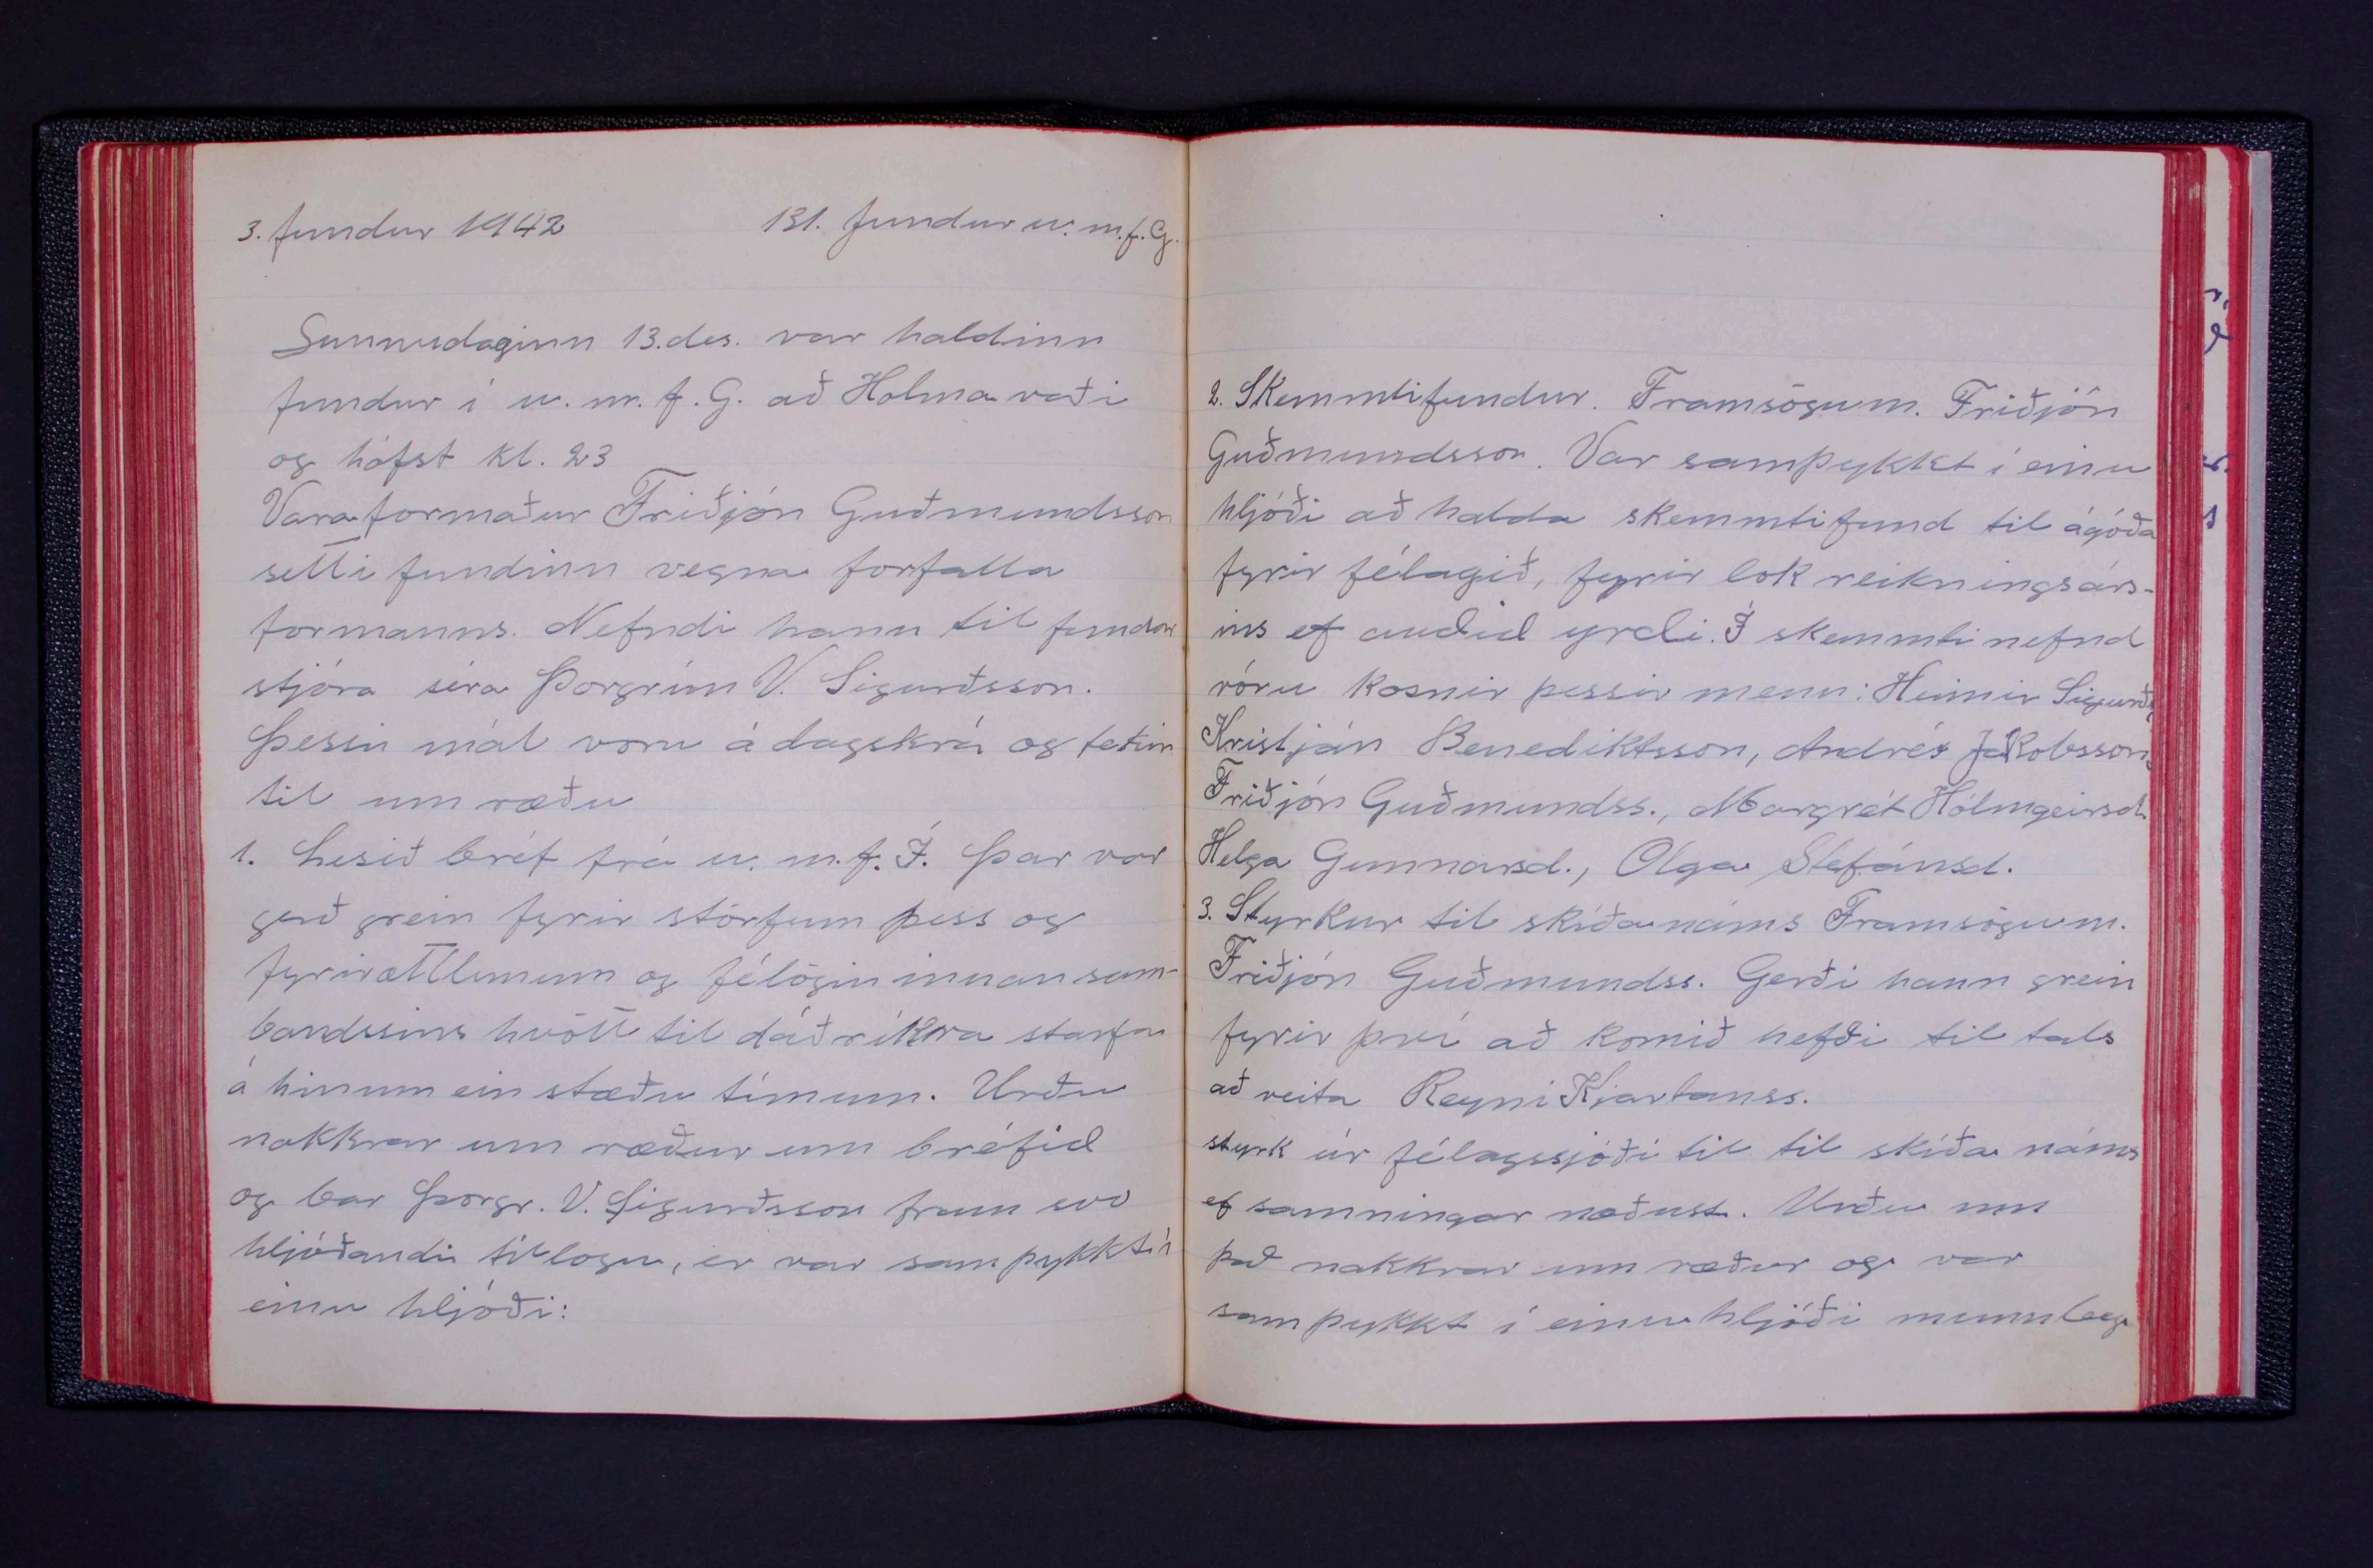 3. fundur 1942 131. fundur u.m.f.G.
Sunnudaginn 13.des. var haldinn
fundur í u.m.f.G. að Holmavaði
og hófst kl. 23
Varaformaður Friðjón Guðmundsson
setti fundinn vegna forfalla
formanns. Nefndi hann til fundar
stjóra séra Þorgrím V. Sigurðsson.
Þessi mál voru á dagskrá og tekin
til umræðu
1. Lesið bréf frá u.m.f.Í. Þar var
gerð grein fyrir störfum þess og
fyrirætlunum og félögin innan sam-
bandssins hvött til dáðríkra starfa
á hinum einstæðu tímum. Urðu
nokkrar umræður um bréfið
og bar Þorgr. V. Sigurðsson fram svo
hljóðandi tillogu, er var samþykkt í
einu hljóði:
2. Skemmtifundur. Framsögum. Friðjón
Guðmundsson. Var samþykkt í einu
hljóði að halda skemmtifund til ágóða
fyrir félagið, fyrir lok reikningsárs-
ins ef auðið yrði. Í skemmtinefnd
vóru kosnir þessir menn: Heimir Sigurðs
Kristján Benediktsson, Andrés Jakobsson,
Friðjón Guðmundss., Margrét Hólmgeirsd.
Helga Gunnarsd., Olga Stefánsd.
3. Styrkur til skíðanáms Framsögum.
Friðjón Guðmundss. Gerði hann grein
fyrir því að komið hefði til tals
að veita Reyni Kjartanss.
styrk úr félagssjóði til til skíða náms
ef samningar næðust. Urðu um
það nokkrar umræður og var
samþykkt í einu hljóði munnleg